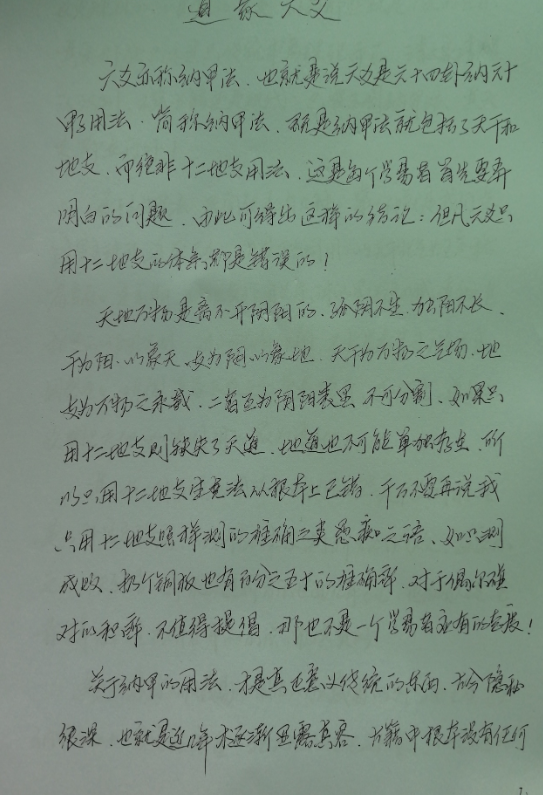 道家六爻
六爻亦称纳甲法，也就是说六爻是六十四卦纳天干
用法，简称纳甲法，既是纳甲法就包括了天干和
地支，而绝非十二地支用法，这是每个学易者首先要弄
明白的问题，由此可得出这样的结论：但凡六爻只
用十二地支的体系都是错误的！
天地万物是离不开阴阳的，孤阴不生，独阳不长，
干为阳，以象天，支为阴，以象地，天干为万物之，地
支为万物之承载，二者互为阴阳表里，不可分割，如果只
用十二地支则缺失了天道，地道也不可能单独存在，所
以只用十二地支生克法从根本上已错，千万不要再说我
只用十二地支照样测的准确之类愚痴之语，如只测
成败，扔个铜板也有百分之五十的准确率，对于偶尔碰
对的积，不值得提倡，那也不是一个学易者应有的态度！
关于纳甲的用法，才是真正意义传统的东西，十分隐秘
很深，也就是近年才逐渐显露真容，古籍中根本没有任何